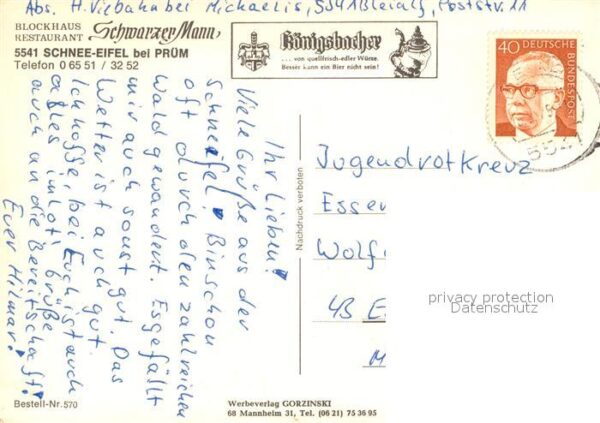 Abs. H. Viebahn bei Michaelis, 5541 Bleialf, Poststr. 11
BLOCKHAUS
RESTAURANT Schwarzer Mann
5541 SCHNEE-EIFEL bei PRÜM
Telefon 0 65 51 / 32 52
Königsbacher
... von quellfrisch-edler Würze.
Besser kann ein Bier nicht sein!
40 DEUTSCHE BUNDESPOST
5541
Ihr Lieben!
Viele Grüße aus der
Schneifel! Bin schon
oft durch den zahlreichen
Wald gewandert. Es gefällt
mir auch sonst gut. Das
Wetter ist auch gut.
Ich hoffe, bei Euch ist auch
alles im Lot! Grüße
auch an die Bereitschaft!
Euer Hilmar!
Nachdruck verboten
Jugendrotkreuz
Essen
Wolf
43 E
privacy protection
Datenschutz
Bestell-Nr. 570
Werbeverlag GORZINSKI
68 Mannheim 31, Tel. (06 21) 75 36 95